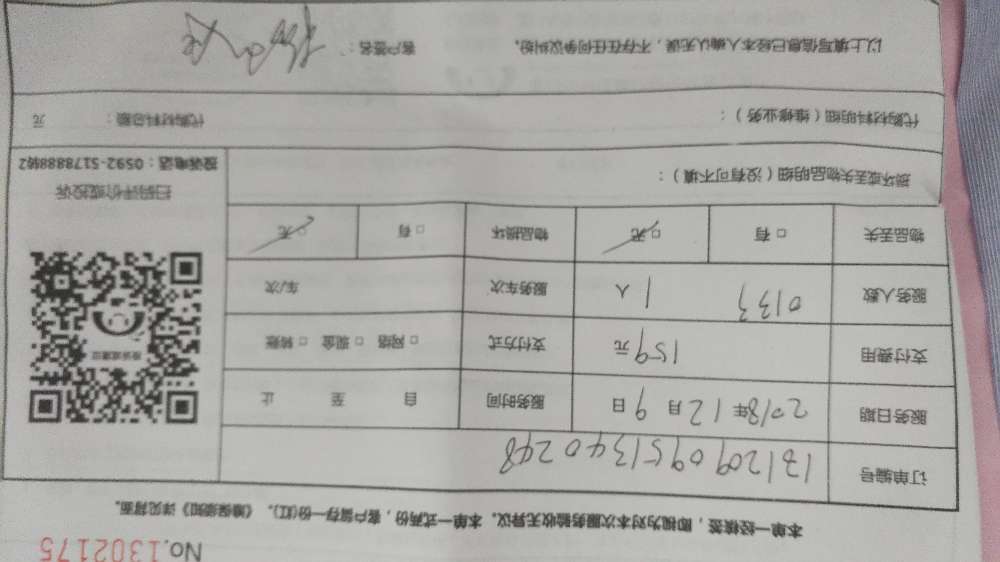 No.1302175
本单一经核签，即视为对本次服务验收无异议。本单一式两份，客户留存一份(红)。《维保须知》详见背面。
订单编号 1312090951340248
服务日期 2018年12月9日 服务时间 自 至 止
支付费用 159元 支付方式 □ 网络 □ 现金 □ 转账
服务人数 0133 1人 服务车次 车/次
物品丢失 □ 有 □ 无 物品损坏 □ 有 □ 无
投诉或建议
扫码评价或投诉
投诉电话：0592-5178888转2
损坏或丢失物品明细（没有可不填）：
代购材料明细（维修业务）： 代购材料总额： 元
以上填写信息已经本人确认无误，不存在任何争议纠纷。 客户签名：